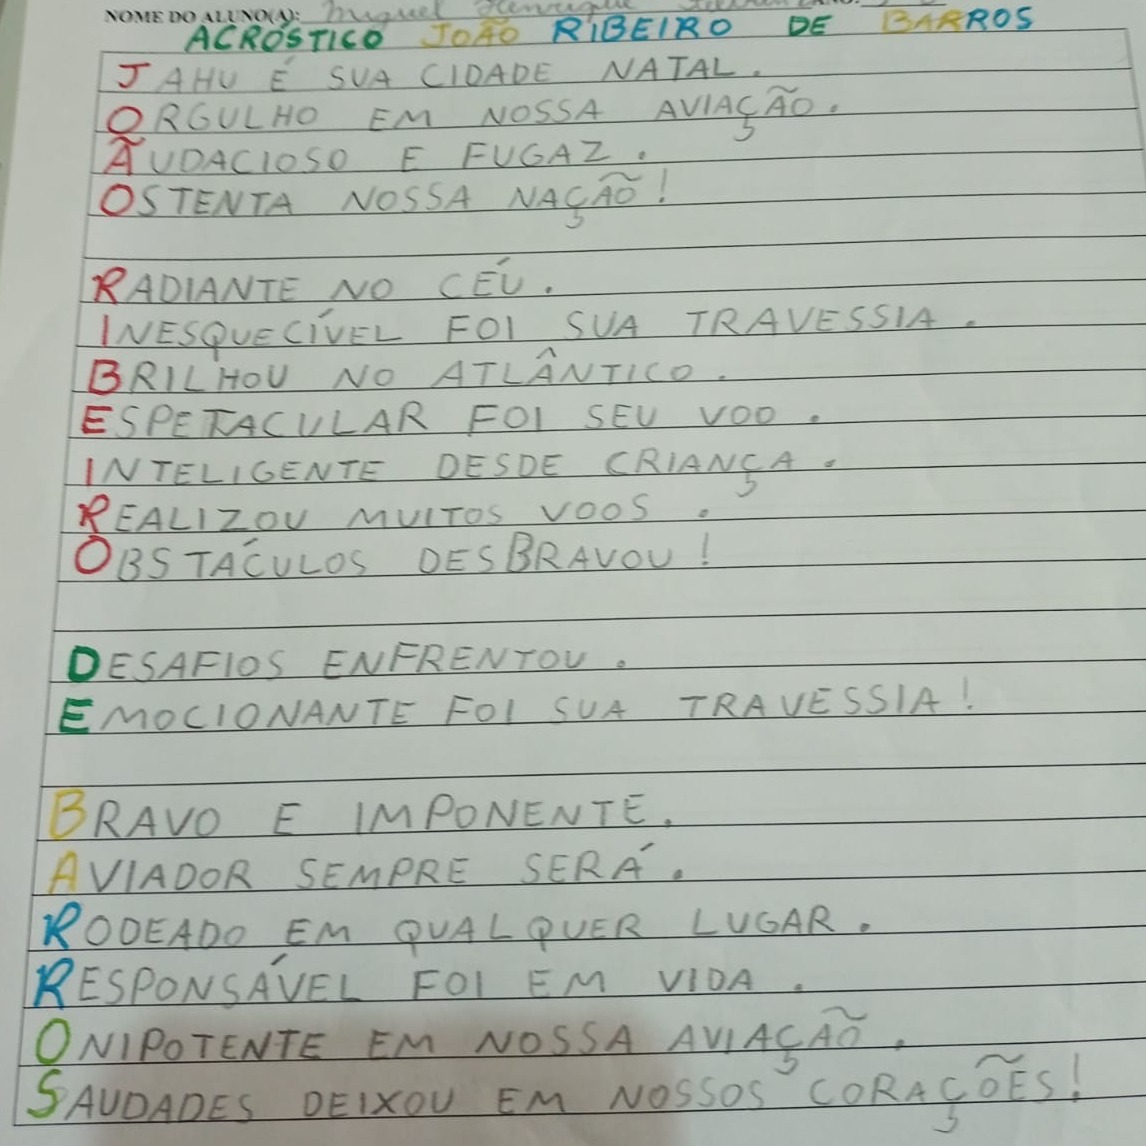 NOME DO ALUNO(A): Miguel Henrique
ACRÓSTICO JOÃO RIBEIRO DE BARROS
JAHU É SUA CIDADE NATAL.
ORGULHO EM NOSSA AVIAÇÃO.
ÃUDACIOSO E FUGAZ.
OSTENTA NOSSA NAÇÃO!
RADIANTE NO CÉU.
INESQUECÍVEL FOI SUA TRAVESSIA.
BRILHOU NO ATLÂNTICO.
ESPETACULAR FOI SEU VOO.
INTELIGENTE DESDE CRIANÇA.
REALIZOU MUITOS VOOS.
OBSTÁCULOS DESBRAVOU!
DESAFIOS ENFRENTOU.
EMOCIONANTE FOI SUA TRAVESSIA!
BRAVO E IMPONENTE.
AVIADOR SEMPRE SERÁ.
RODEADO EM QUALQUER LUGAR.
RESPONSÁVEL FOI EM VIDA.
ONIPOTENTE EM NOSSA AVIAÇÃO.
SAUDADES DEIXOU EM NOSSOS CORAÇÕES!